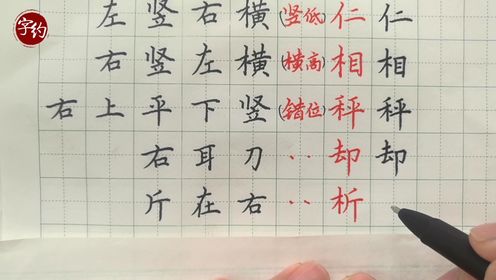 字约
左竖右横(竖低)仁仁
右竖左横(横高)相相
右上平下竖(错位)秤秤
右耳刀··却却
斤在右··析